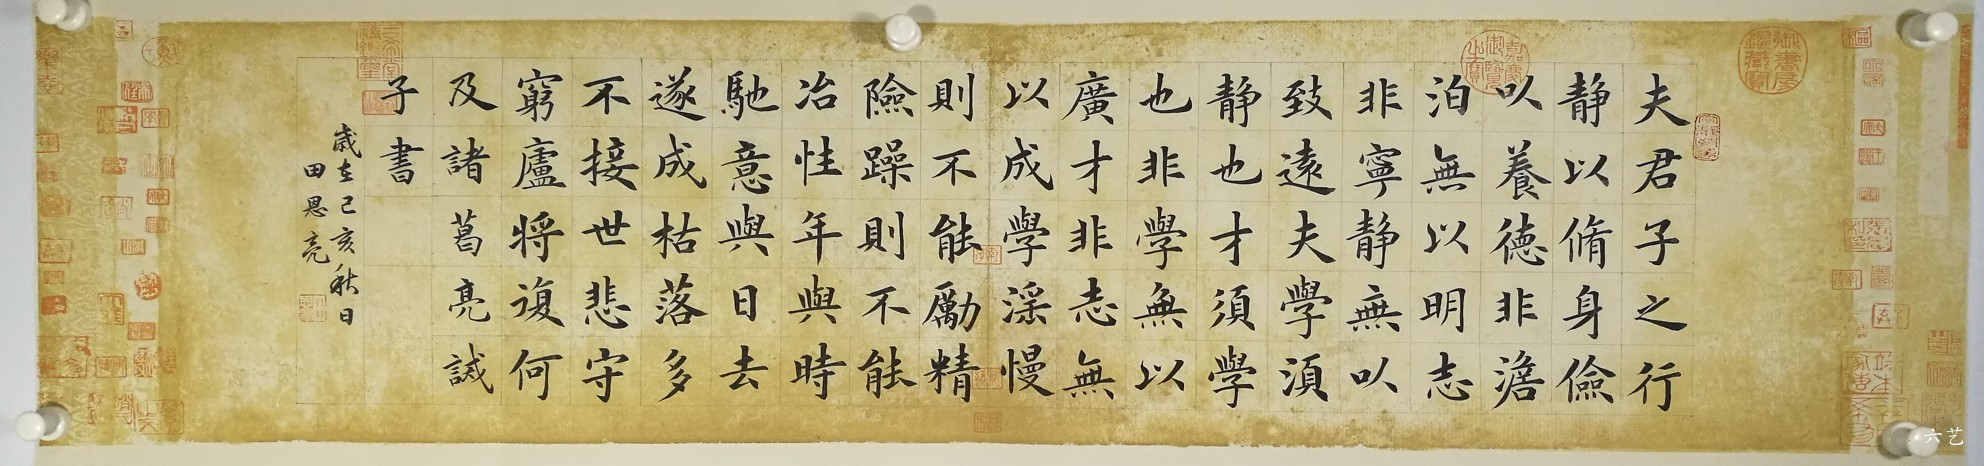 夫君子之行
静以脩身儉
以養德非澹
泊無以明志
非寧静無以
致遠夫學湏
静也才須學
也非學無以
廣才非志無
以成學滛慢
則不能勵精
險躁則不能
冶性年與時
馳意與日去
遂成枯落多
不接世悲守
窮廬将復何
及諸葛亮誡
子書
歲在己亥秋日
田恩亮
御書房鑑藏寶
嘉慶御覽之寶
六艺